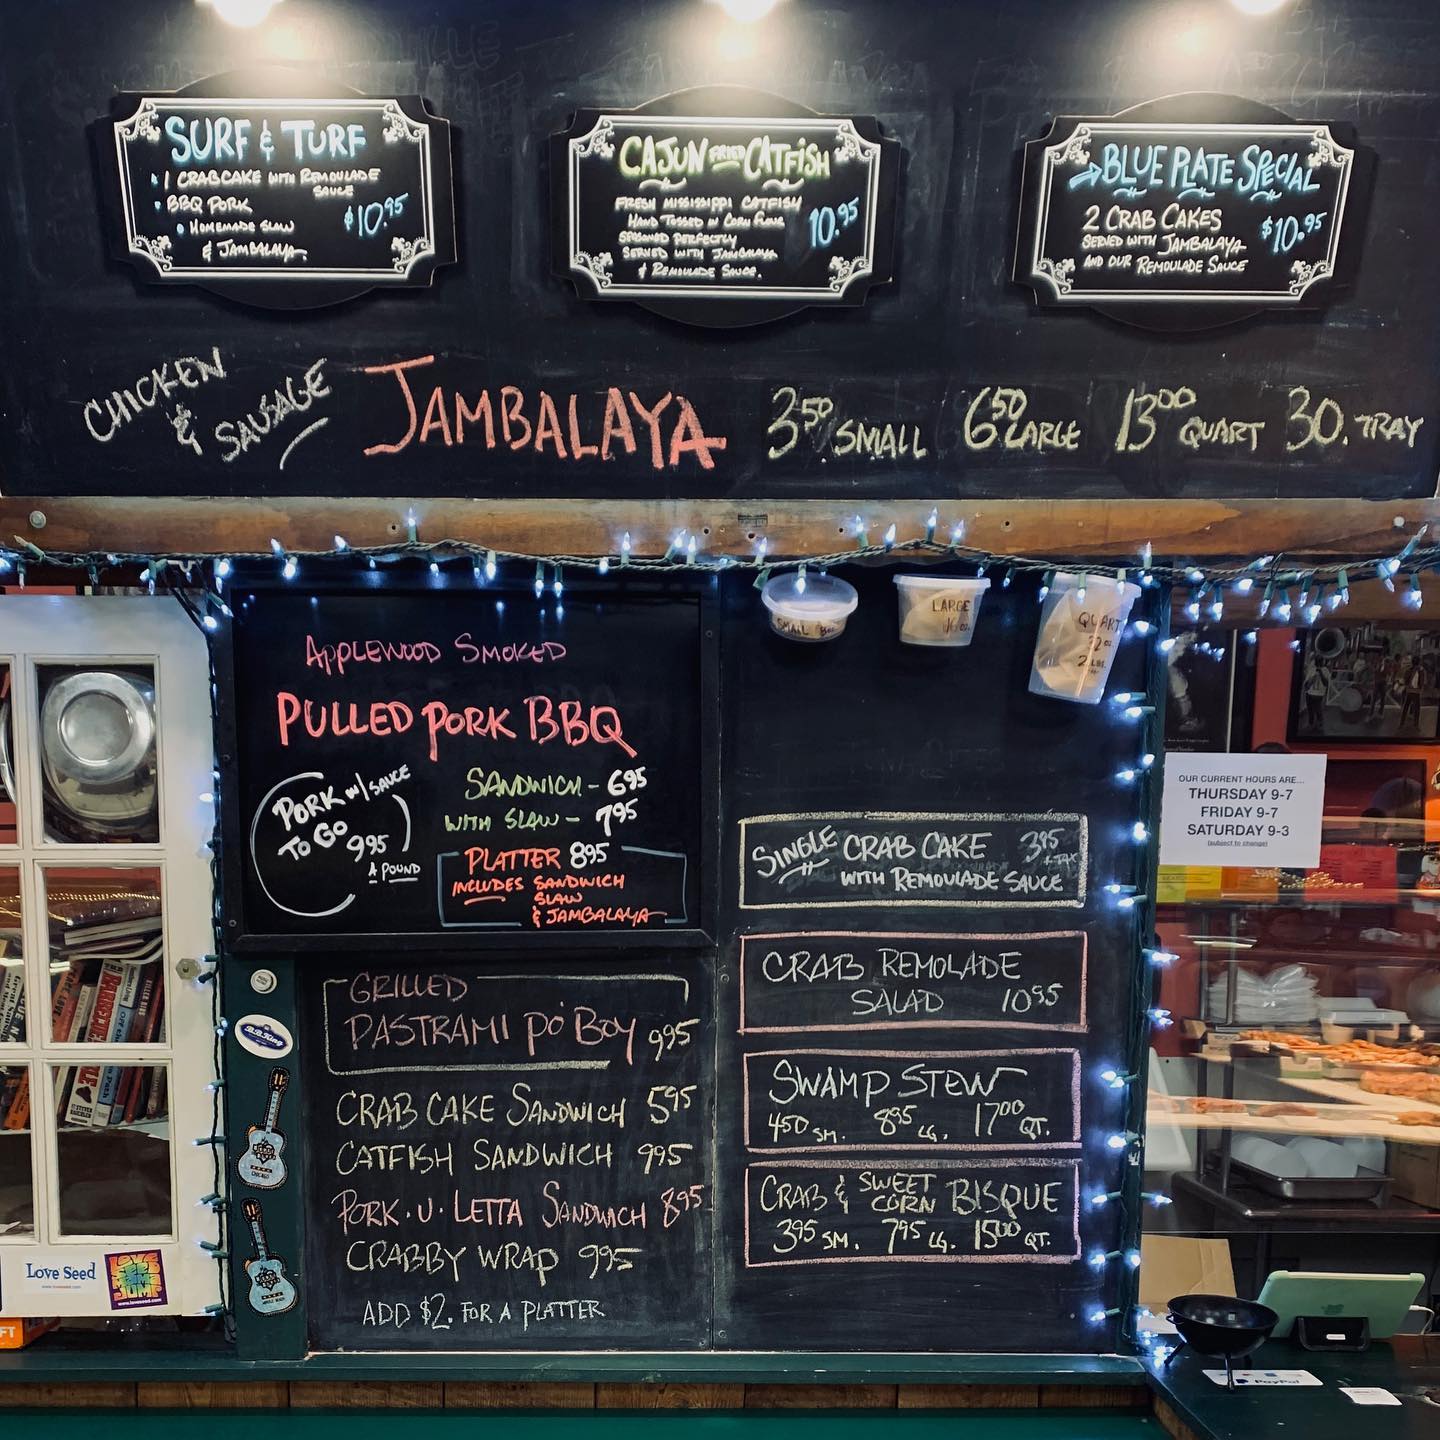 SURF & TURF
1 CRABCAKE WITH REMOULADE
SAUCE
BBQ PORK
HOMEMADE SLAW
& JAMBALAYA
$10.95
CAJUN FRIED CATFISH
FRESH MISSISSIPPI CATFISH
HAND TOSSED IN CORN FLOUR
SEASONED PERFECTLY
SERVED WITH JAMBALAYA
& REMOULADE SAUCE.
10.95
BLUE PLATE SPECIAL
2 CRAB CAKES
SERVED WITH JAMBALAYA
AND OUR REMOULADE SAUCE
$10.95
CHICKEN
& SAUSAGE
JAMBALAYA 3.50 SMALL 6.50 LARGE 13.00 QUART 30. TRAY
SMALL 8oz
LARGE
16 oz.
QUART
32 oz.
2 LBS.
APPLEWOOD SMOKED
PULLED PORK BBQ
PORK W/ SAUCE
TO GO
9.95
A POUND
SANDWICH - 6.95
WITH SLAW - 7.95
PLATTER 8.95
INCLUDES SANDWICH
SLAW
& JAMBALAYA
GRILLED
PASTRAMI PO'BOY 9.95
CRAB CAKE SANDWICH 5.95
CATFISH SANDWICH 9.95
PORK·U·LETTA SANDWICH 8.95
CRABBY WRAP 9.95
ADD $2. FOR A PLATTER
SINGLE CRAB CAKE 3.95
+ TAX
WITH REMOULADE SAUCE
CRAB REMOLADE
SALAD 10.95
SWAMP STEW
4.50 SM. 8.95 LG. 17.00 QT.
CRAB & SWEET CORN BISQUE
3.95 SM. 7.95 LG. 15.00 QT.
OUR CURRENT HOURS ARE...
THURSDAY 9-7
FRIDAY 9-7
SATURDAY 9-3
(subject to change)
B.B. King
Love Seed
www.loveseed.com
PayPal